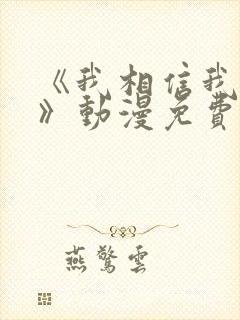 《我相信我
》動漫免費
燕驚雲